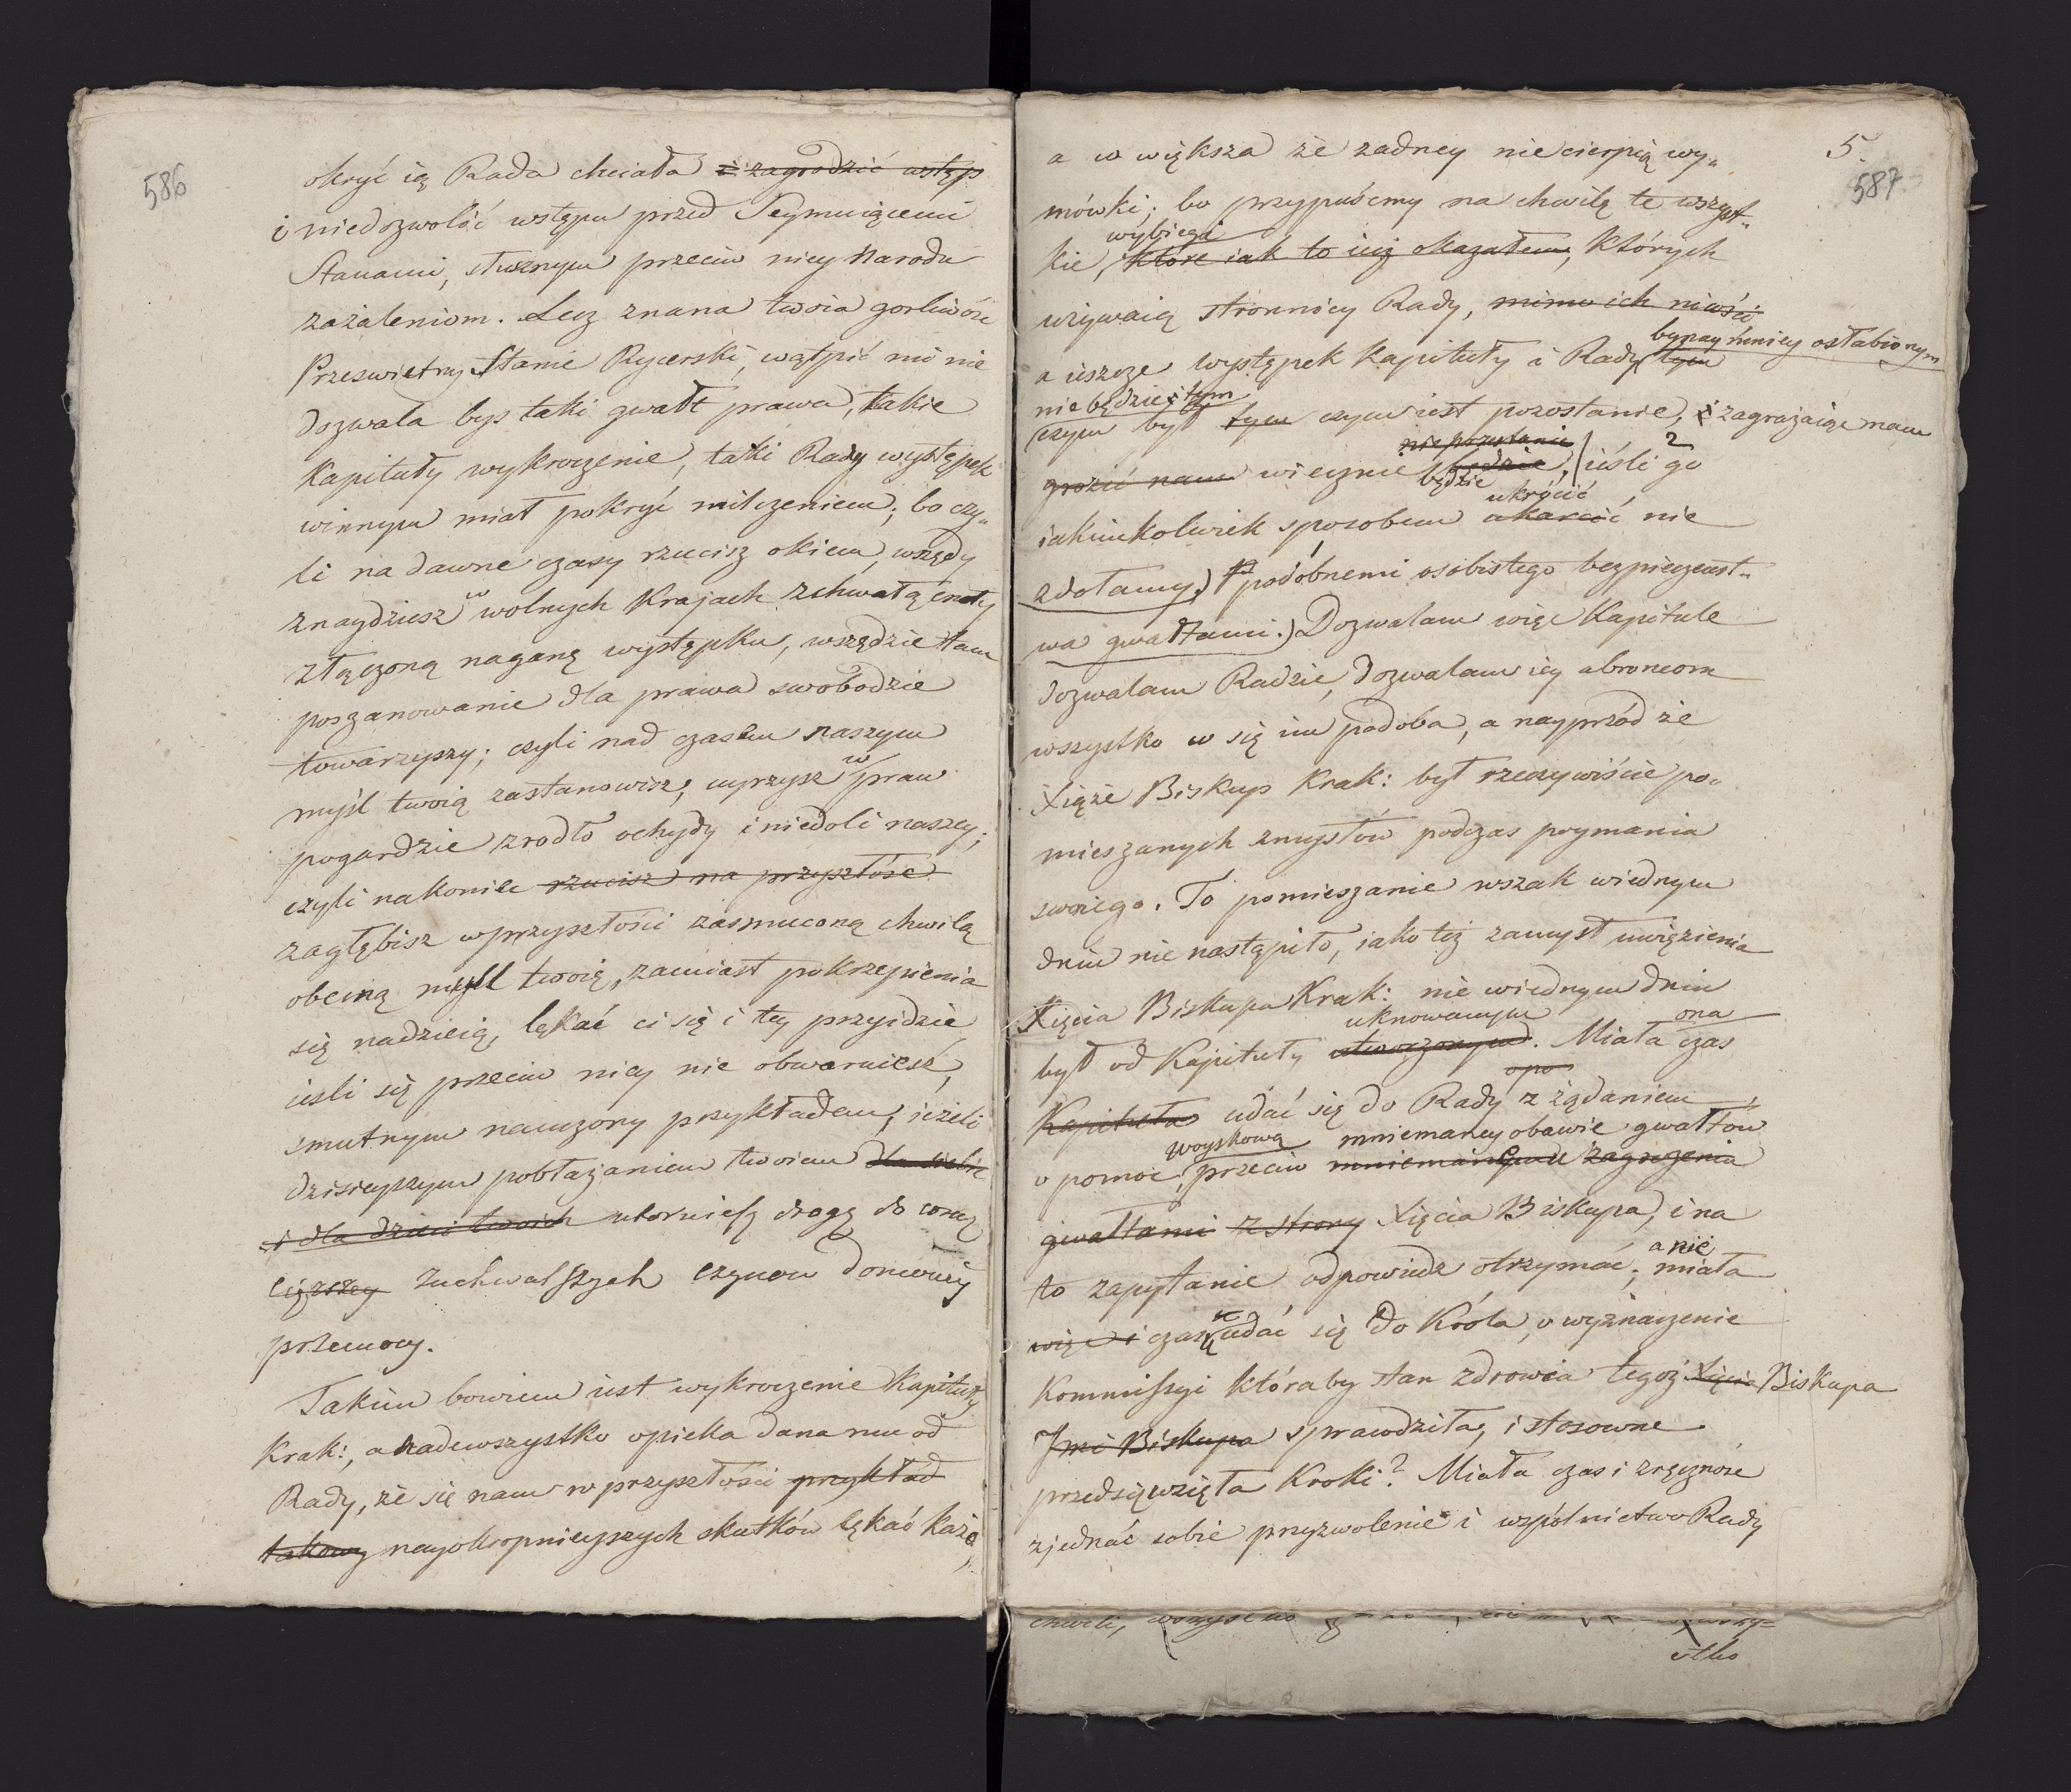 586
okryć ią Rada chciała i zagrodzić wstęp
i niedozwolić wstępu przed Seymuiącemi
Stanami, słusznym przeciw niey Narodu
zażaleniom. Lecz znana twoia gorliwość
Prześwietny Stanie Rycerski, wątpić mi nie
dozwala byś taki gwałt prawa, takie
Kapituły wykroczenie, taki Rady występek
winnym miał pokryć milczeniem; bo czy„
li na dawne czasy rzucisz okiem, wszędy
znaydziesz w wolnych Krajach z chwałą cnoty
złączoną naganę występku, wszędzie tam
poszanowanie dla prawa swobodzie
towarzyszy; czyli nad czasem naszym
myśl twoią zastanowisz, uyrzysz w praw
pogardzie zrodło ochydy i niedoli naszey;
czyli nakoniec rzucisz na przyszłość
zagłębisz w przyszłości zasmuconą chwilą
obecną myśl twoię, zamiast pokrzepienia
się nadzieią, lękać ci się i tey przyidzie
ieśli się przeciw niey nie obwaruiesz,
smutnym nauczony przykładem; ieżeli
dzisieyszym pobłażaniem twoiem dla siebie
i dla dzieci twoich utoruiesz drogę do coraz
cięższey zuchwalszych czynow domowey
przemocy.
Takim bowiem iest wykroczenie Kapituły
Krak:, a nadewszystko opieka dana mu od
Rady, że się nam w przyszłości przykład
takowy nayokropnieyszych skutków lękać każe,
5.
587
a w większa że żadney niecierpią wy„
mówki; bo przypuśćmy na chwilę te wszyst„
wybiegi
kie, które iak to iuż okazałem, których
używaią stronnicy Rady, mimo ich niość
bynaymniey osłabionym
a ieszcze występek Kapituły i Rady tym
nie będzie; tym
czym był tym czym iest pozostanie, i zagrażaiąc nam
nie przestanie 2
grozić nam wiecznie będzie, ieśli go
będzie ukrócić
iakimkolwiek sposobem ukarcić nie
zdołamy) podobnemi osobistego bezpieczeńst„
wa gwałtami.) Dozwalam więc Kapitule
dozwalam Radzie, dozwalam iey obroncom
wszystko co się im podoba, a nayprzód że
Xiąże Biskup Krak: był rzeczywiście po„
mieszanych zmysłów podczas poymania
swoiego. To pomieszanie wszak wiednym
dniu nie nastąpiło, iako też zamysł uwięzienia
Xięcia Biskupa Krak: nie wiednym dniu
uknowanym ona
był od Kapituły utworzonym. Miała czas
opo
Kapituła udać się do Rady z żądaniem
woyskową mniemaney obawie gwałtów
o pomoc, przeciw mniemanemu zagrożenia
gwałtami z strony Xięcia Biskupa, i na
a nie
to zapytanie odpowiedź otrzymać; miała
więc i czas udać się do Króla, o wyznaczenie
Kommissyi któraby stan zdrowia tegoż Xięcia Biskupa
Jmci Biskupa sprawdziła, i stosowne
przedsięwzięła Kroki? Miała czas i zręczność
zjednać sobie przyzwolenie i wspólnictwo Rady
chwili,
stko